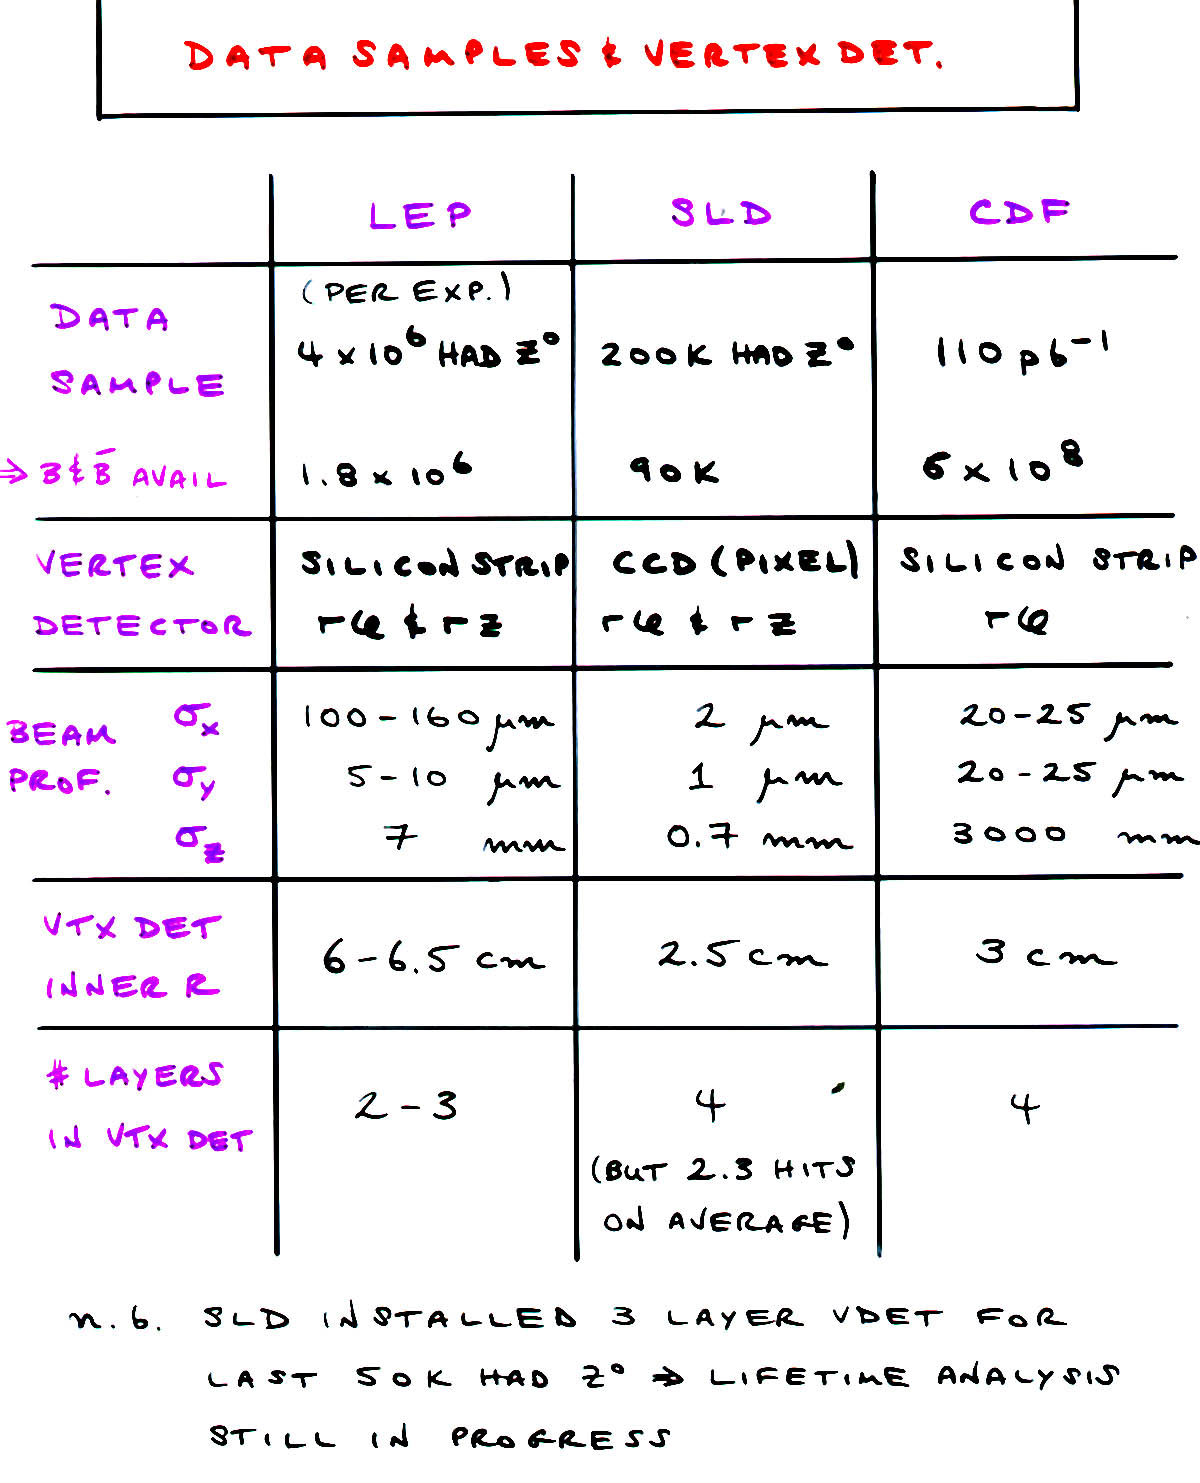 DATA SAMPLES & VERTEX DET.
LEP SLD CDF
(PER EXP.)
DATA SAMPLE 4 x 10⁶ HAD Z⁰ 200K HAD Z⁰ 110 pb⁻¹
⇒ B & B̄ AVAIL 1.8 x 10⁶ 90K 6 x 10⁸
VERTEX SILICON STRIP CCD (PIXEL) SILICON STRIP
DETECTOR rφ & rz rφ & rz rφ
BEAM σx 100-160 μm 2 μm 20-25 μm
PROF. σy 5-10 μm 1 μm 20-25 μm
σz 7 mm 0.7 mm 3000 mm
VTX DET
INNER R 6-6.5 cm 2.5 cm 3 cm
# LAYERS
IN VTX DET 2-3 4 4
(BUT 2.3 HITS
ON AVERAGE)
n.b. SLD INSTALLED 3 LAYER VDET FOR
LAST 50K HAD Z⁰ ⇒ LIFETIME ANALYSIS
STILL IN PROGRESS